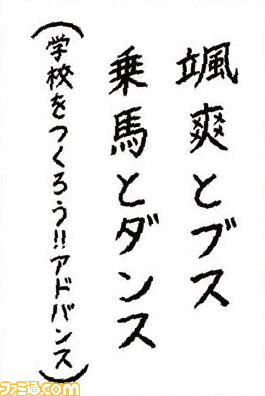 颯爽とブス
乗馬とダンス
(学校をつくろう!!アドバンス)
ファミ通.com